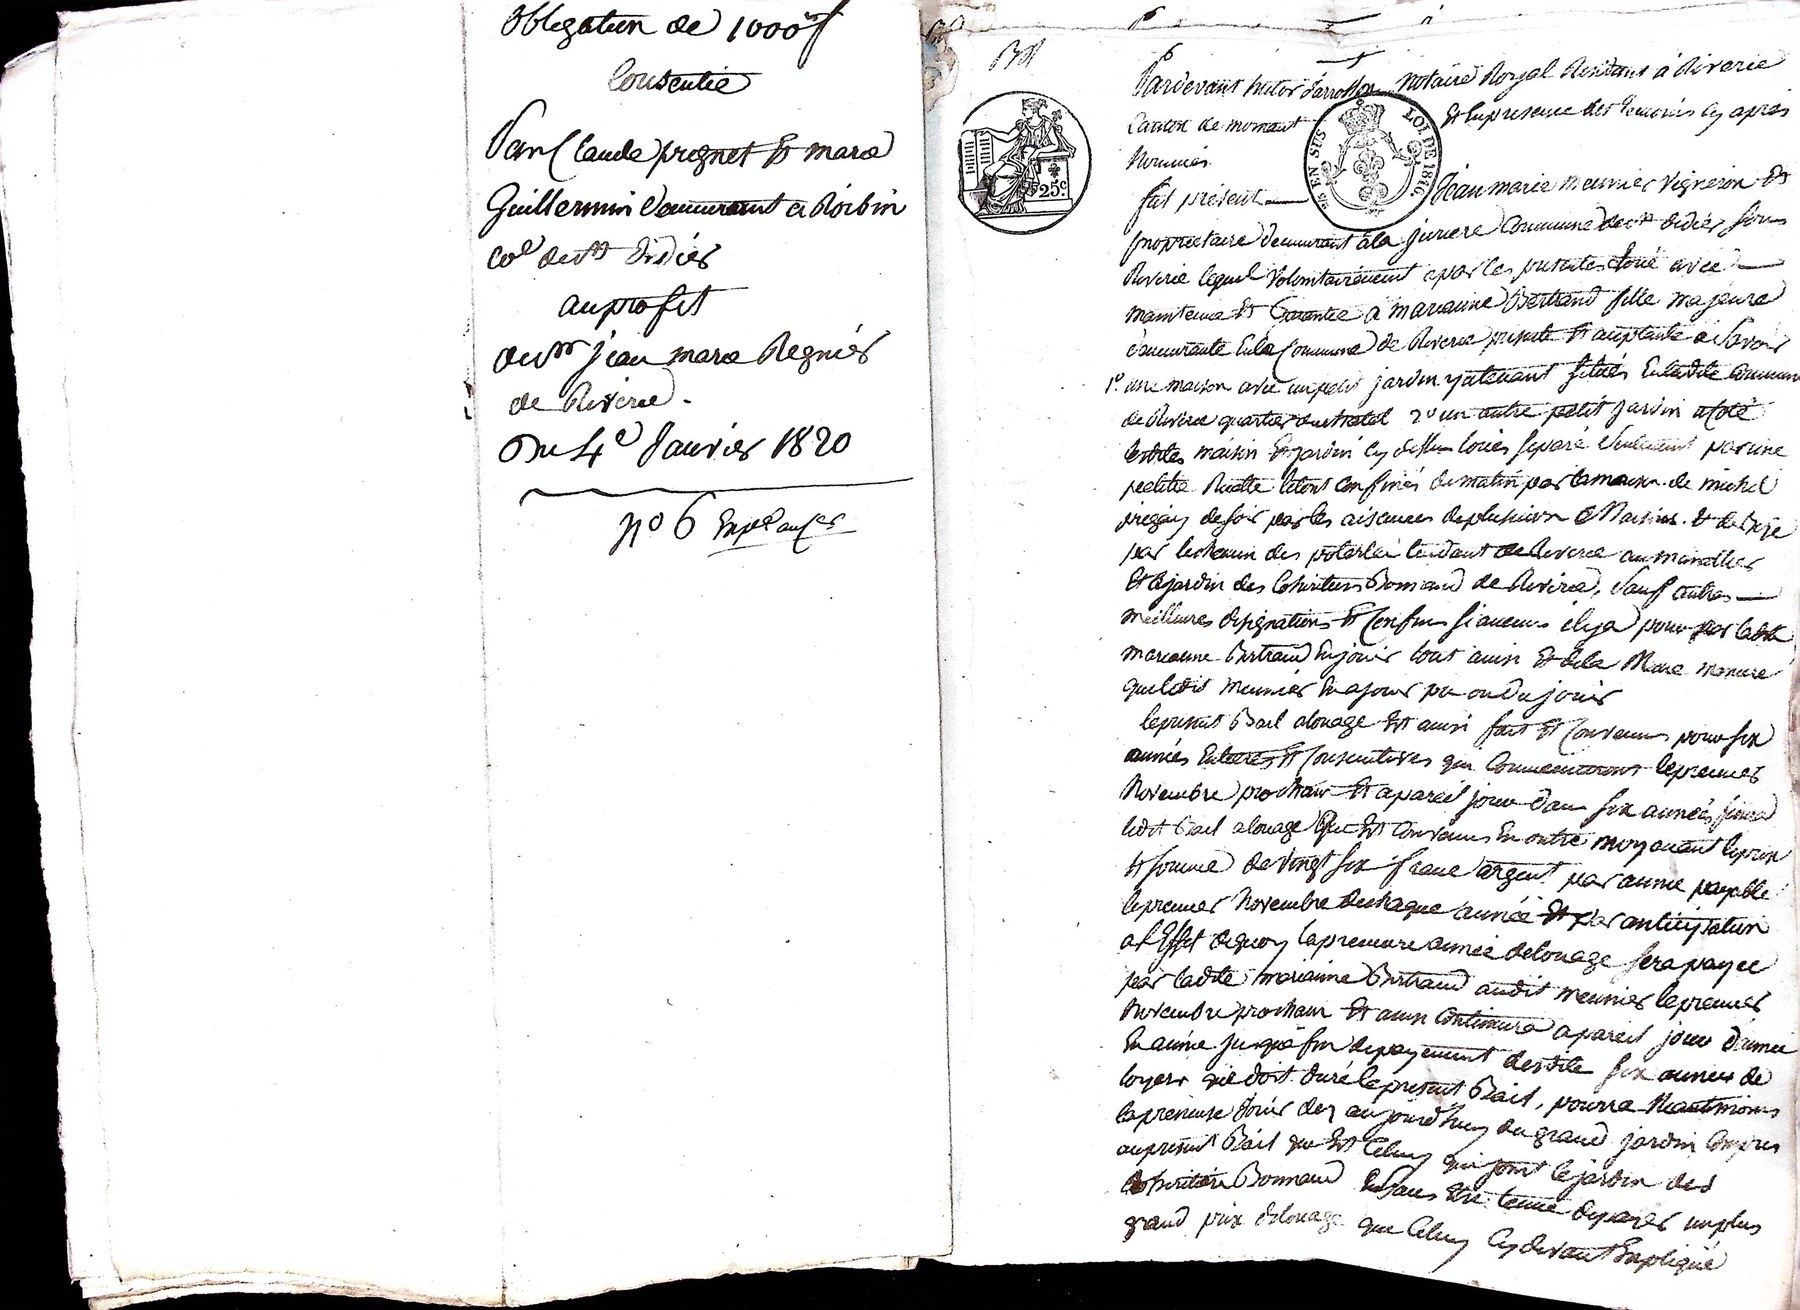 Obligation de 1000 f
Consentie
Par Claude prignet Et marie
Guillermin demeurant a Roibin
co.e de st didier
au profit
de mr jean marie Regnier
de Riverie.
Du 4e Janvier 1820
n° 6
Pardevant notaire Royal Résidant à Riverie
Canton de mornant Et En presence des temoins cy après
Nommés.
fut présent Jean marie meunier vigneron Et
propriétaire demeurant à la commune de st didier sous
Riverie lequel volontairement a par les presentes loué avec
maintenue Et Garantie à marianne Bertrand fille majeure
demeurante En la Commune de Riverie presente Et acceptante a Savoir
1°. une maison avec un petit jardin y attenant situés En ladite Commune
de Riverie quartier 2° un autre petit jardin a Coté
lesdites maison Et jardin cy dessus loués separé seulement par une
petite Ruelle le tout confinés de matin par la maison de michel
de soir par les aisances de plusieurs Maisons. Et de bize
par le chemin des tendant de Riverie
Et le jardin des Cohéritiers Bonnand de Riverie, sauf autres
meilleures désignations Et Confins si aucuns il y a pour par ladite
marianne Bertrand En jouir tout ainsi Et de la Même maniere
que ledit meunier En a joui pu ou du jouir
le présent Bail alouage Est ainsi fait Et Convenu pour six
années Entieres Et Consécutives qui Commenceront le premier
Novembre prochain Et a pareil jour dans six années finira
ledit Bail alouage Qui Est Convenu En outre moyenant le prix
Et somme de vingt six franc argent par année payable
le premier Novembre de chaque année Et par anticipation
a l'Effet de quoy la premiere année de louage sera payée
par ladite marianne Bertrand audit meunier le premier
Novembre prochain Et ainsi Continuera a pareil jour d'année
En année jusqu'à fin de payement desdite six années de
loyers que doit duré le présent Bail, pourra Néantmoins
la preneuse jouir dez aujourd'huy du grand jardin Compris
au présent Bail qui Est Celuy qui joint le jardin des
Cohéritiers Bonnand En sans Etre tenue de payer un plus
grand prix de louage que Celuy Cy devant Expliqué
25c
EN SUS
LOI DE 1816